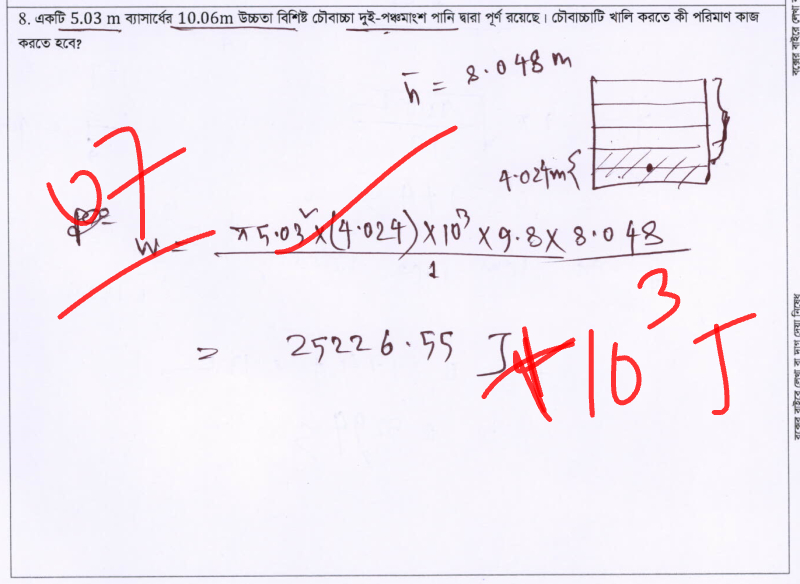 8. একটি 5.03 m ব্যাসার্ধের 10.06m উচ্চতা বিশিষ্ট চৌবাচ্চা দুই-পঞ্চমাংশ পানি দ্বারা পূর্ণ রয়েছে। চৌবাচ্চাটি খালি করতে কী পরিমাণ কাজ
করতে হবে?
h̄ = 8.048 m
4.024m
07
W = π 5.03² × (4.024) × 10³ × 9.8 × 8.048
1
= 25226.55 J × 10³ J